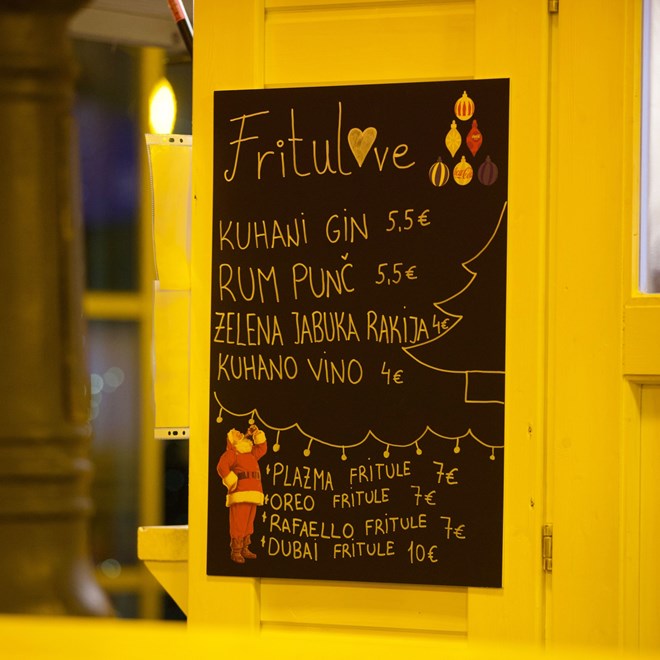 Fritulove
KUHANI GIN 5,5€
RUM PUNČ 5,5€
ZELENA JABUKA RAKIJA 4€
KUHANO VINO 4€
PLAZMA FRITULE 7€
OREO FRITULE 7€
RAFAELLO FRITULE 7€
DUBAI FRITULE 10€